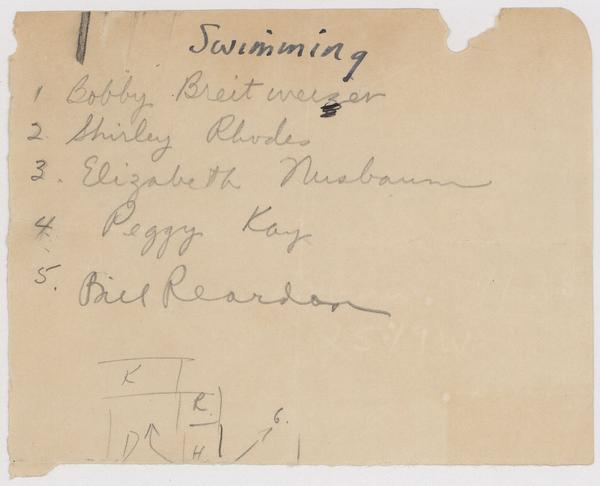 Swimming
1 Bobby Breitweizer
2 Shirley Rhodes
3. Elizabeth Nusbaum
4 Peggy Kay
5. Bill Reardon
K
R.
6.
D
H